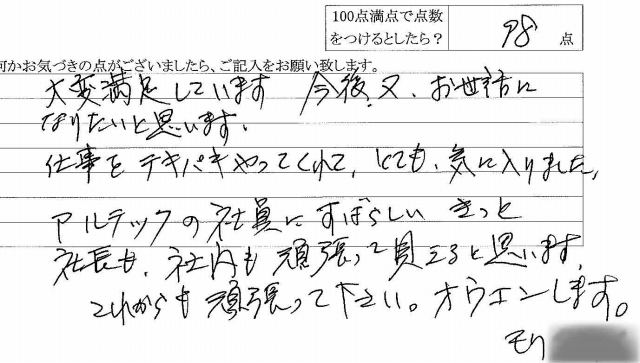 100点満点で点数
をつけるとしたら？ 98 点
何かお気づきの点がございましたら、ご記入をお願い致します。
大変満足しています 今後、又、お世話に
なりたいと思います。
仕事をテキパキやってくれて、とても、気に入りました。
アルテックの社員はすばらしい きっと
社長も、社内も頑張って貰えると思います。
これからも頑張って下さい。オウエンします。
モリ